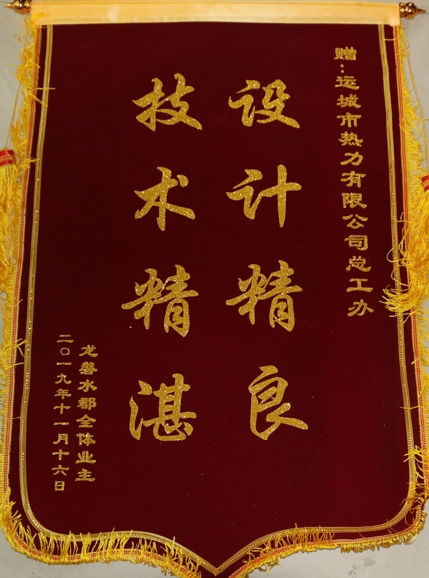 赠:运城市热力有限公司总工办
设计精良
技术精湛
龙磐水郡全体业主
二〇一九年十一月十六日